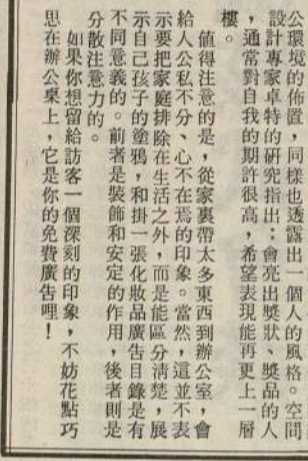 公環境的佈置，同樣也透露出一個人的風格。空間
設計專家卓特的研究指出：會亮出獎狀、獎品的人
，通常對自我的期許很高，希望表現能再更上一層
樓。
值得注意的是，從家裏帶太多東西到辦公室，會
給人公私不分、心不在焉的印象。當然，這並不表
示要把家庭排除在生活之外，而是能區分清楚，展
示自己孩子的塗鴉，和掛一張化妝品廣告目錄是有
不同意義的。前者是裝飾和安定的作用，後者則是
分散注意力的。
如果你想留給訪客一個深刻的印象，不妨花點巧
思在辦公桌上，它是你的免費廣告哩！